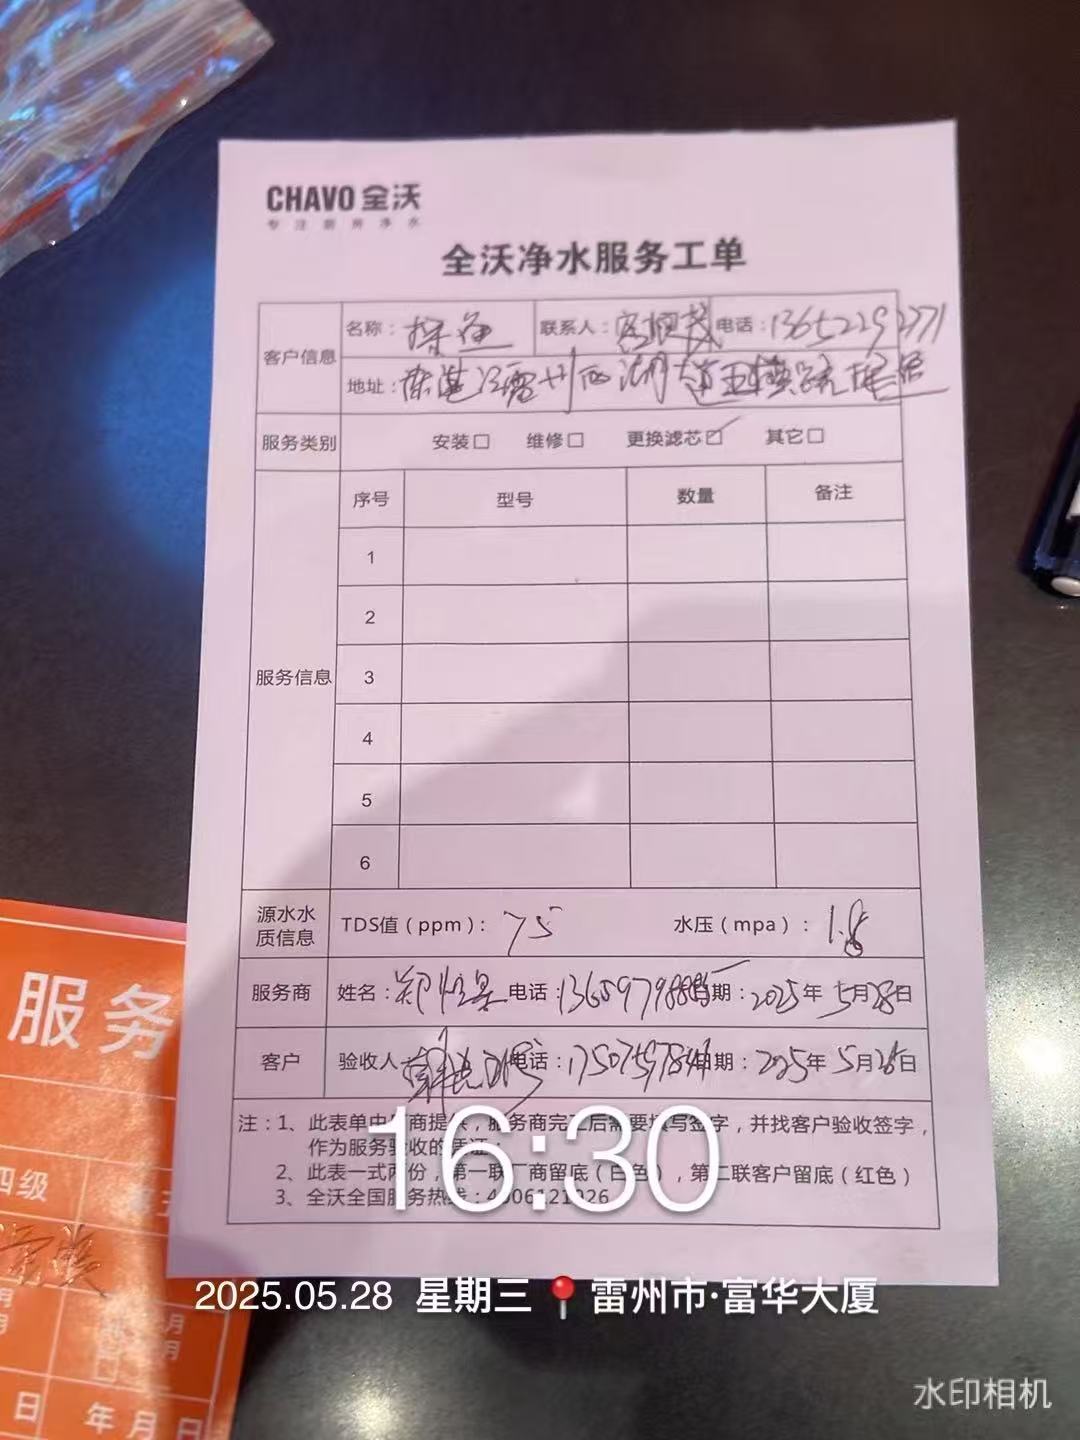 CHAVO 全沃
专注厨房净水
全沃净水服务工单
客户信息
名称：探鱼 联系人： 电话：13652292771
地址：湛江雷州西湖大道
服务类别 安装□ 维修□ 更换滤芯☑ 其它□
服务信息
序号 型号 数量 备注
1
2
3
4
5
6
源水水质信息 TDS值（ppm）：75 水压（mpa）：1.8
服务商 姓名：郑 电话： 日期：2025年5月28日
客户 验收人 电话： 日期：2025年5月28日
注：1、此表单由厂商提供，服务商完工后需要填写签字，并找客户验收签字，
作为服务验收的凭证；
2、此表一式两份，第一联厂商留底（白色），第二联客户留底（红色）
3、全沃全国服务热线：4006121026
16:30
2025.05.28 星期三 雷州市·富华大厦
水印相机
服务
四级
日
年 月 日